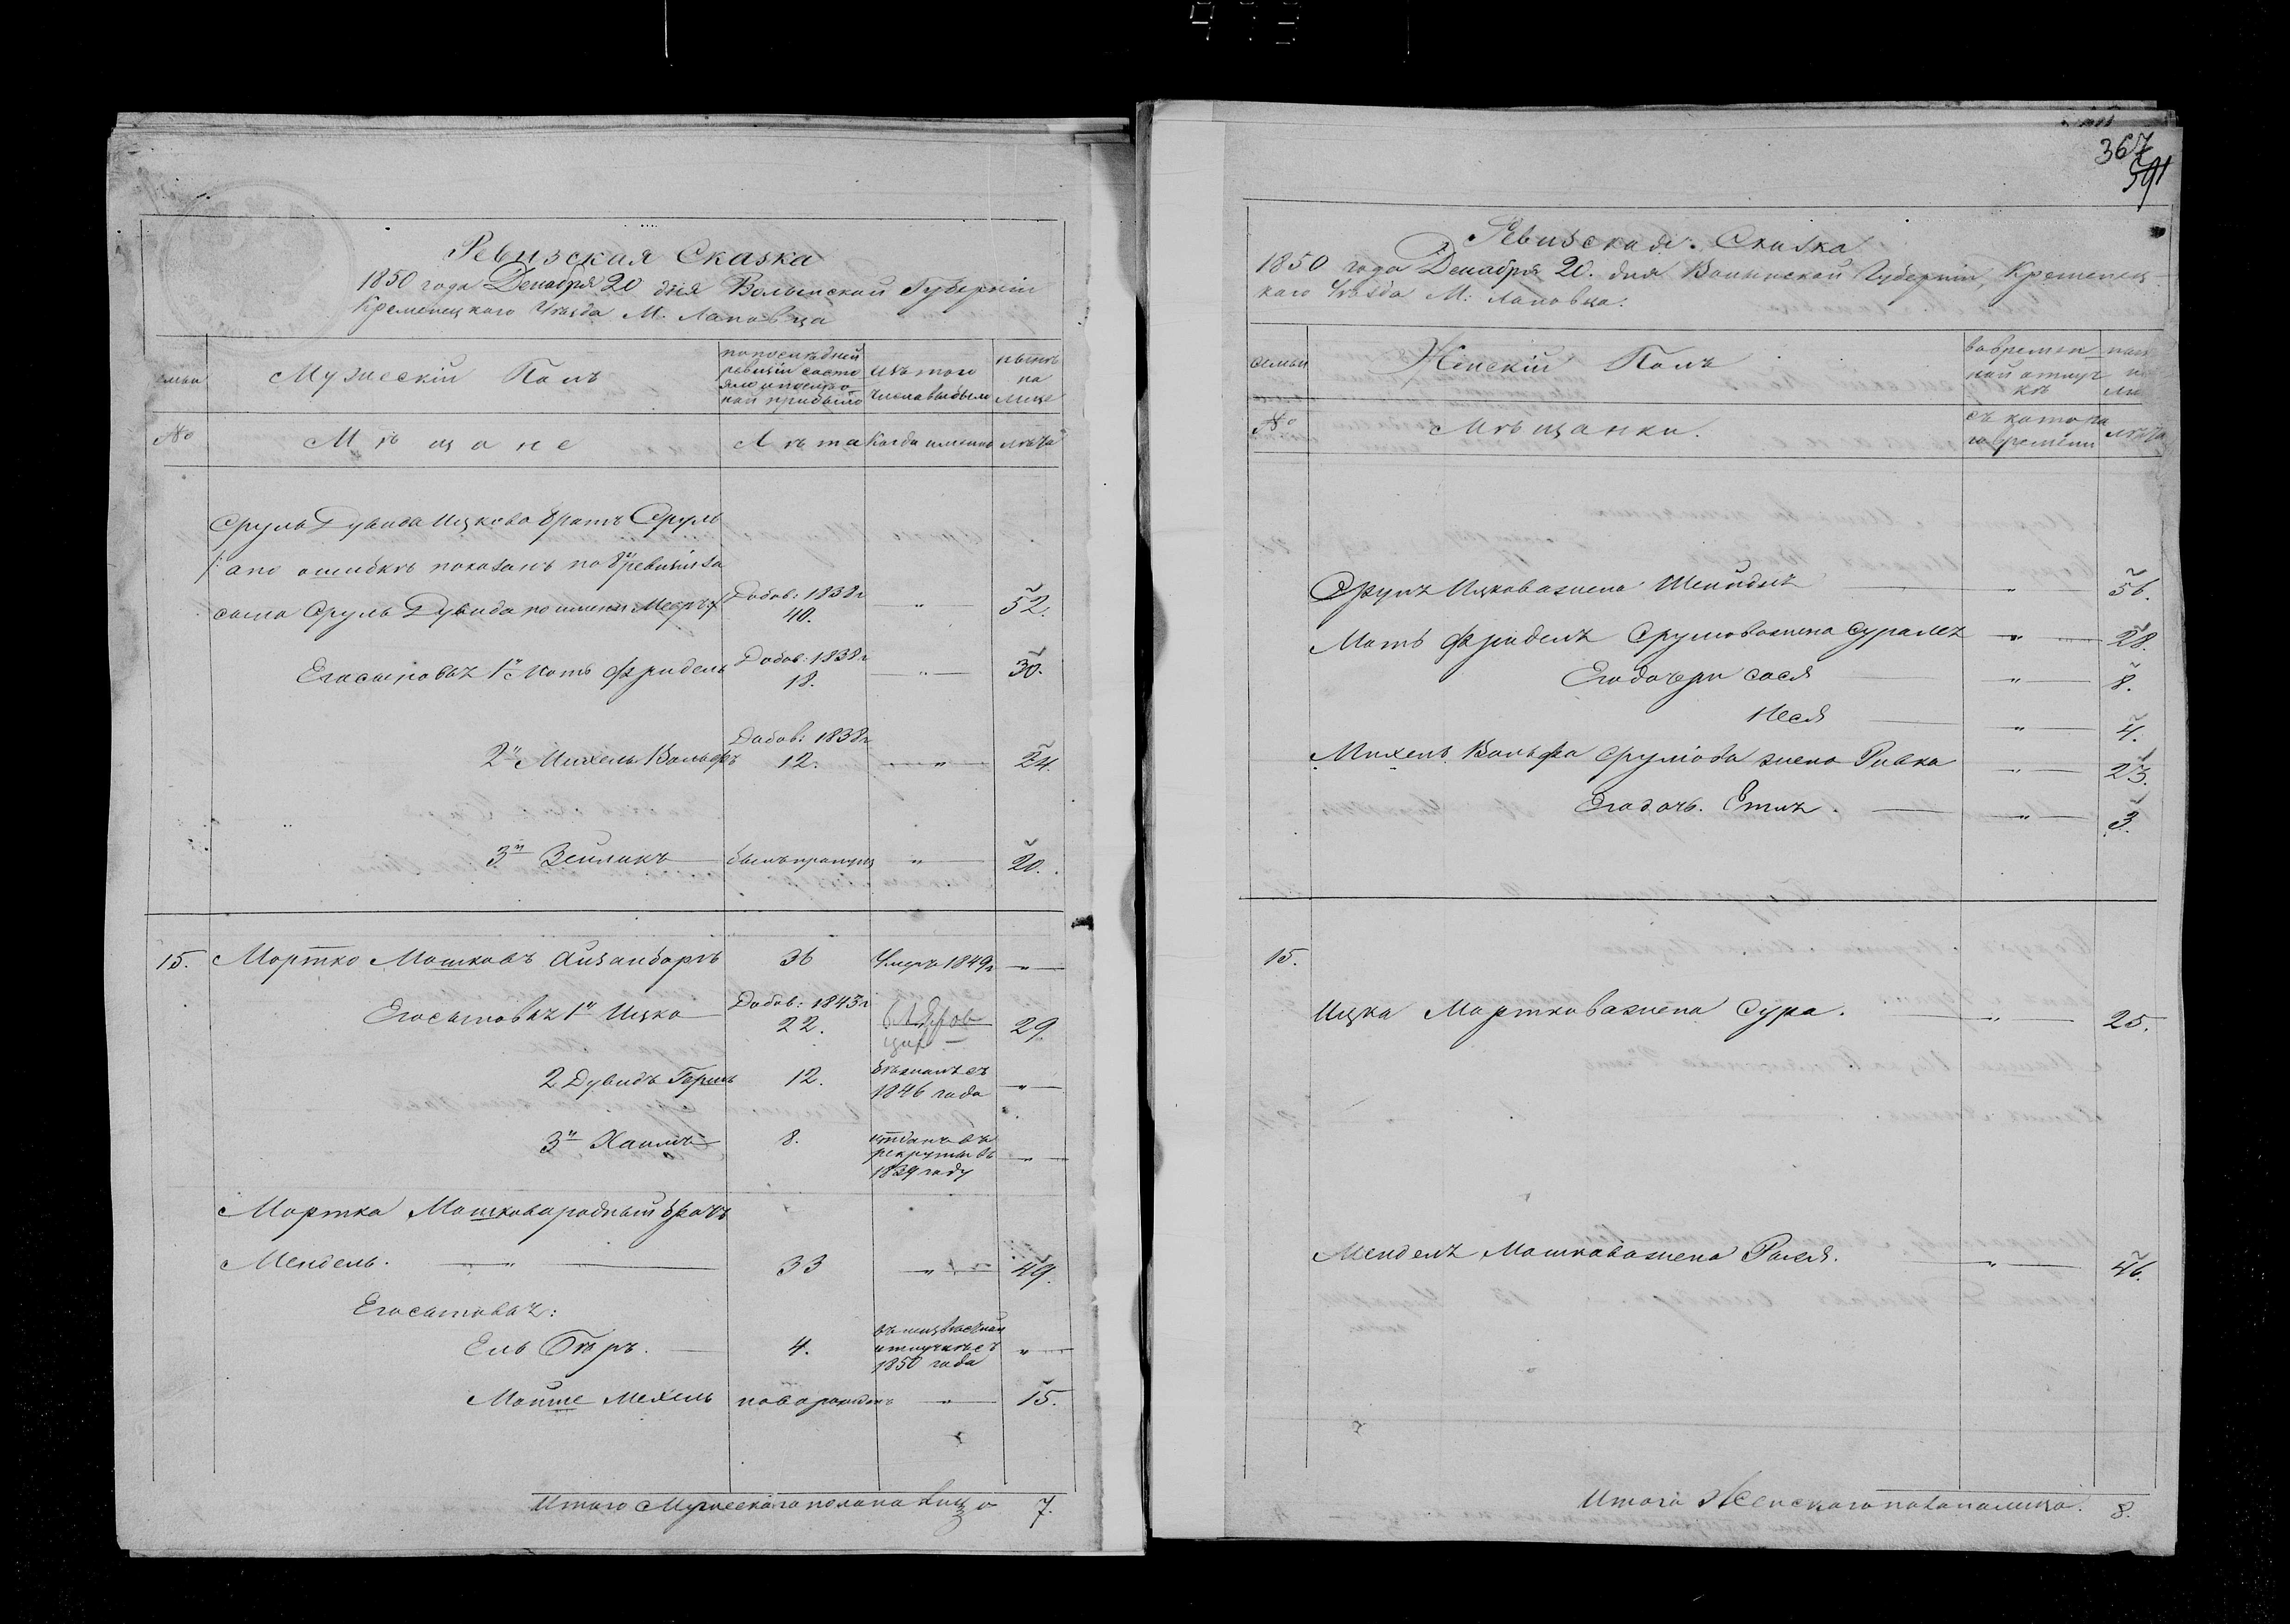 Ревизская Сказка
1850 года Декабря 20 дня Волынской Губернiи
Кременецкаго Уѣзда М. Лановца
семьи
Мужескiй Полъ
по послѣдней
ревизiи состо
яло и после
ной прибыло
Изъ того
числа выбыло
нынѣ
на
лице
№
Мѣщане
Лѣта
Когда именно
лѣта
Сруль Дувида Ицкова братъ Сруль
/: а по ошибкѣ показанъ по 8й ревизiи за
сына Сруль Дувида по имени
Добов: 1838г
40.
"
52.
Его сыновья 1й Мотъ Фридель
Добов: 1838г
18.
"
30.
2й Михель Вольфъ
Добов: 1838г
12.
"
24.
3й Зейликъ
былъ пропущ
"
20.
15.
Мортко Мошковъ Айзанбаргъ
36
Умеръ 1849г
"
Его сыновья 1й Ицко
Добов: 1843г
22.
29.
2 Дувидъ Гершъ
12.
Бѣжалъ съ
1846 года
"
3й Хаимъ
8.
отданъ въ
рекруты въ
1839 году
"
Мортка Мошкова родный братъ
Мендель.
"
33
"
49.
Его сыновья:
Ель Беръ.
4.
въ неизвѣстной
отлучкѣ съ
1850 года
"
Мойше Мехель
новорожденъ
"
15.
Итого Мужескаго пола на лицо
7.
367
591
Ревизская Сказка
1850 года Декабря 20. дня Волынской Губернiи, Кременец-
каго Уѣзда М: Лановца.
семьи
Женскiй Полъ
во времен
ной отлуч
кѣ
№
Мѣщанки.
съ котора
го времени
лѣта
Сруля Ицкова жена Шейндля
"
56.
Мотъ Фриделя Срулева жена Суралея
"
28.
Его дочери Сося
"
8.
Неся
"
4.
Михель Вольфа Срулiова жена Ривка
"
23.
Его дочь. Етля.
"
3.
15.
Ицка Морткова жена Сура.
"
25.
Менделя Мошкова жена Рахля.
"
46.
Итого Женскаго пола на лицо.
8.